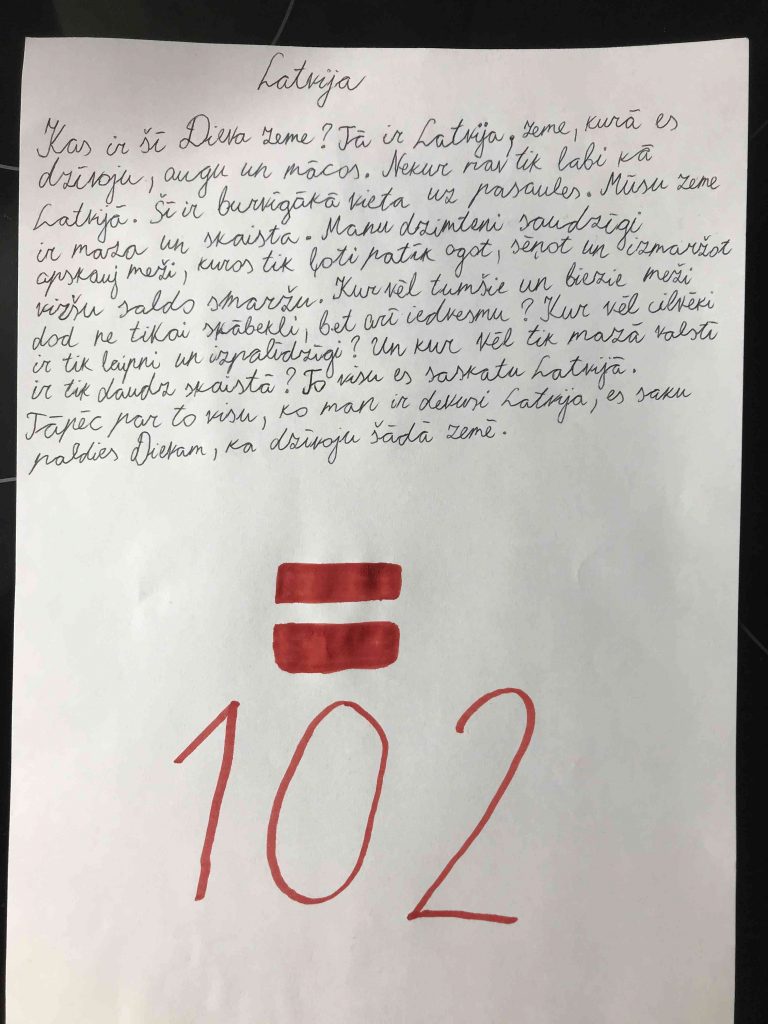 Latvija
Kas ir šī Dieva zeme? Tā ir Latvija, zeme, kurā es
dzīvoju, augu un mācos. Nekur nav tik labi kā
Latvijā. Šī ir burvīgākā vieta uz pasaules. Mūsu zeme
ir maza un skaista. Manu dzimteni saudzīgi
apskauj meži, kuros tik ļoti patīk ogot, sēņot un izmaržot
vizšu saldo smaržu. Kur vēl tumšie un biezie meži
dod ne tikai skābekli, bet arī iedvesmu? Kur vēl cilvēki
ir tik laipni un izpalīdzīgi? Un kur vēl tik mazā valstī
ir tik daudz skaistā? To visu es saskatu Latvijā.
Tāpēc par to visu, ko man ir devusi Latvija, es saku
paldies Dievam, ka dzīvoju šādā zemē.
102